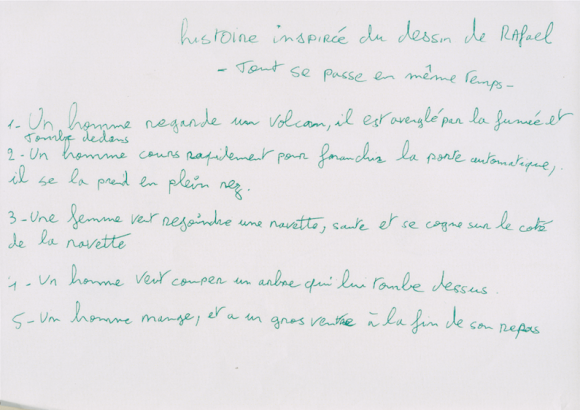 histoire inspirée du dessin de RAfael
- Tout se passe en même temps -
1- Un homme regarde un volcan, il est avenglé par la fumée et
tombe dedans
2- Un homme cours rapidement pour franchir la porte automatique,
il se la prend en plein nez.
3- Une femme veut rejoindre une navette, saute et se cogne sur le coté
de la navette
4- Un homme veut couper un arbre qui lui tombe dessus.
5- Un homme mange, et a un gros ventre à la fin de son repas